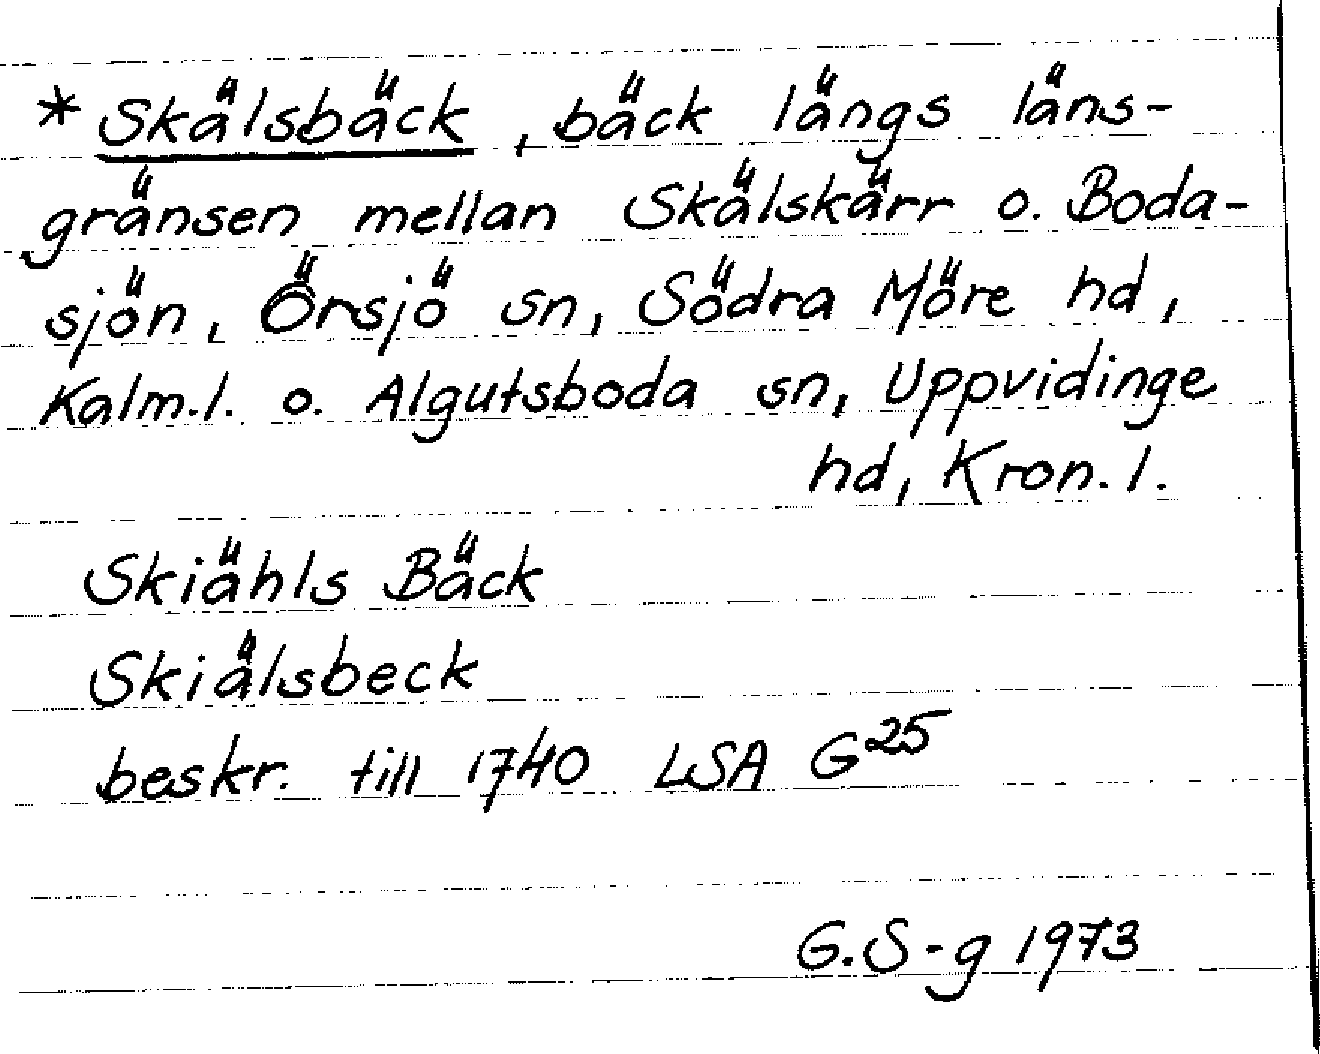 * Skälsbäck, bäck längs läns-
gränsen mellan Skälskärr o. Boda-
sjön, Örsjö sn, Södra Möre hd,
Kalm.l. o. Algutsboda sn, Uppvidinge
hd, Kron.l.
Skiähls Bäck
Skiälsbeck
beskr. till 1740 LSA G25
G.S-g 1973